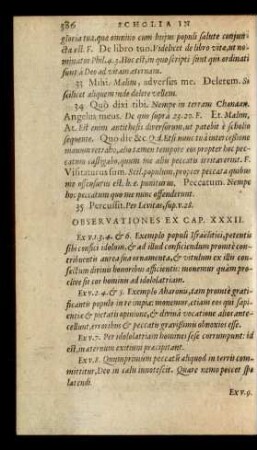 586 SCHOLIA IN
gloria tua, que omnino cum hujus populi salute conjun-
cta est. F. De libro tuo. Videlicet de libro vitæ, ut no-
minatur Phil. 4. 3. Hoc est, in quo scripti sunt qui ordinati
sunt à Deo ad vitam æternam.
33 Mihi. Malim, adversus me. Delerem. Si
scilicet aliquem inde delere vellem.
34 Quò dixi tibi. Nempe in terram Chanaan.
Angelus meus. De quo suprà 23. 20. F. Et. Malim,
At. Est enim antithesis diversorum, ut patebit è scholio
sequente. Quo die &c. Etsi nunc tuâ intercessione
manum retrabo, alio tamen tempore eos propter hoc pec-
catum castigabo, quum me alio peccato irritaverint. F.
Visitaturus sum. Scil. populum, propter peccata quibus
me offensurus est. h. e. puniturus. Peccatum. Nempe
hoc peccatum quo me nunc offenderunt.
35 Percussit. Per Levitas, sup. v. 28.
OBSERVATIONES EX CAP. XXXII.
Ex v. 1. 3. 4. & 6. Exemplo populi Israëlitici, petentis
sibi confici idolum, & ad illud conficiendum promtè con-
tribuentis aurea sua ornamenta, & vitulum ex illis con-
flatum divinis honoribus afficientis: monemur quàm pro-
clive sit cor hominum ad idololatriam.
Ex v. 2. 4. & 5. Exemplo Aharonis, tam promtè grati-
ficantis populo in re impia: monemur, etiam eos qui sapi-
entiæ & pietatis opinione, & divinâ vocatione alios ante-
cellunt, erroribus & peccatis gravissimis obnoxios esse.
Ex v. 7. Per idololatriam homines sese corrumpunt: id
est, in æternum exitium præcipitant.
Ex v. 8. Quumprimùm peccatũ aliquod in terris com-
mittitur, Deo in cælu innotescit. Quare nemo peccet spe
latendi.
Ex v. 9.